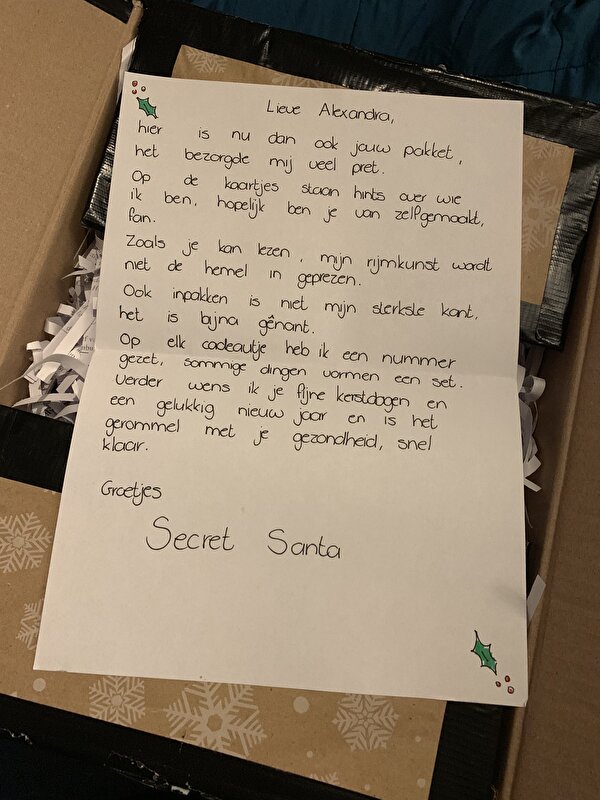 Lieve Alexandra,
hier is nu dan ook jouw pakket,
het bezorgde mij veel pret.
Op de kaartjes staan hints over wie
ik ben, hopelijk ben je van zelfgemaakt,
fan.
Zoals je kan lezen, mijn rijmkunst wordt
niet de hemel in geprezen.
Ook inpakken is niet mijn sterkste kant,
het is bijna gênant.
Op elk cadeautje heb ik een nummer
gezet, sommige dingen vormen een set.
Verder wens ik je fijne kerstdagen en
een gelukkig nieuw jaar en is het
gerommel met je gezondheid, snel
klaar.
Groetjes
Secret Santa